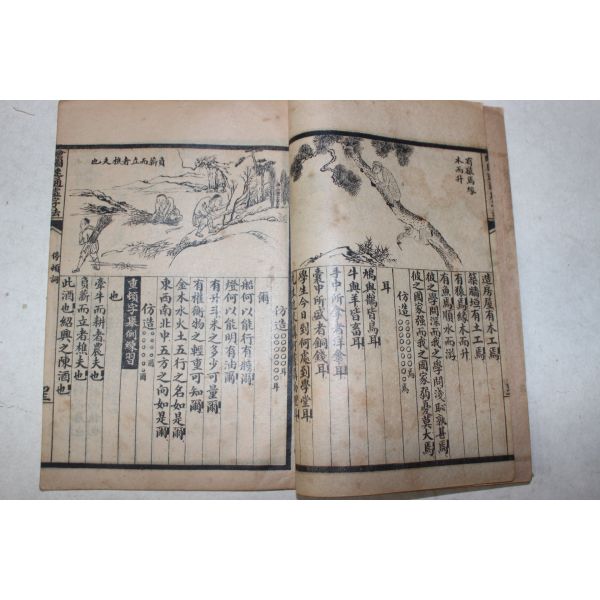 有猿焉緣
木而升
造房屋有木工焉
築牆垣有土工焉
有猿焉緣木而升
有魚焉順水而游
彼之學問深而我之學問淺恥孰甚焉
彼之國家强而我之國家弱憂莫大焉
仿造○○○○○○焉
耳
鳩與鵲皆鳥耳
牛與羊皆畜耳
手中所拿者洋傘耳
囊中所盛者銅錢耳
學生今日到何處到學堂耳
仿造○○○○○耳
爾
船何以能行有艘爾
燈何以能明有油爾
有升斗米之多少可量爾
有權衡物之輕重可知爾
金木水火土五行之名如是爾
東西南北中五方之向如是爾
仿造○○○○○爾
重頓字舉例練習
也
牽牛而耕者農夫也
負薪而立者樵夫也
此酒也紹興之陳酒也
負薪而立者樵夫也
停頓詞